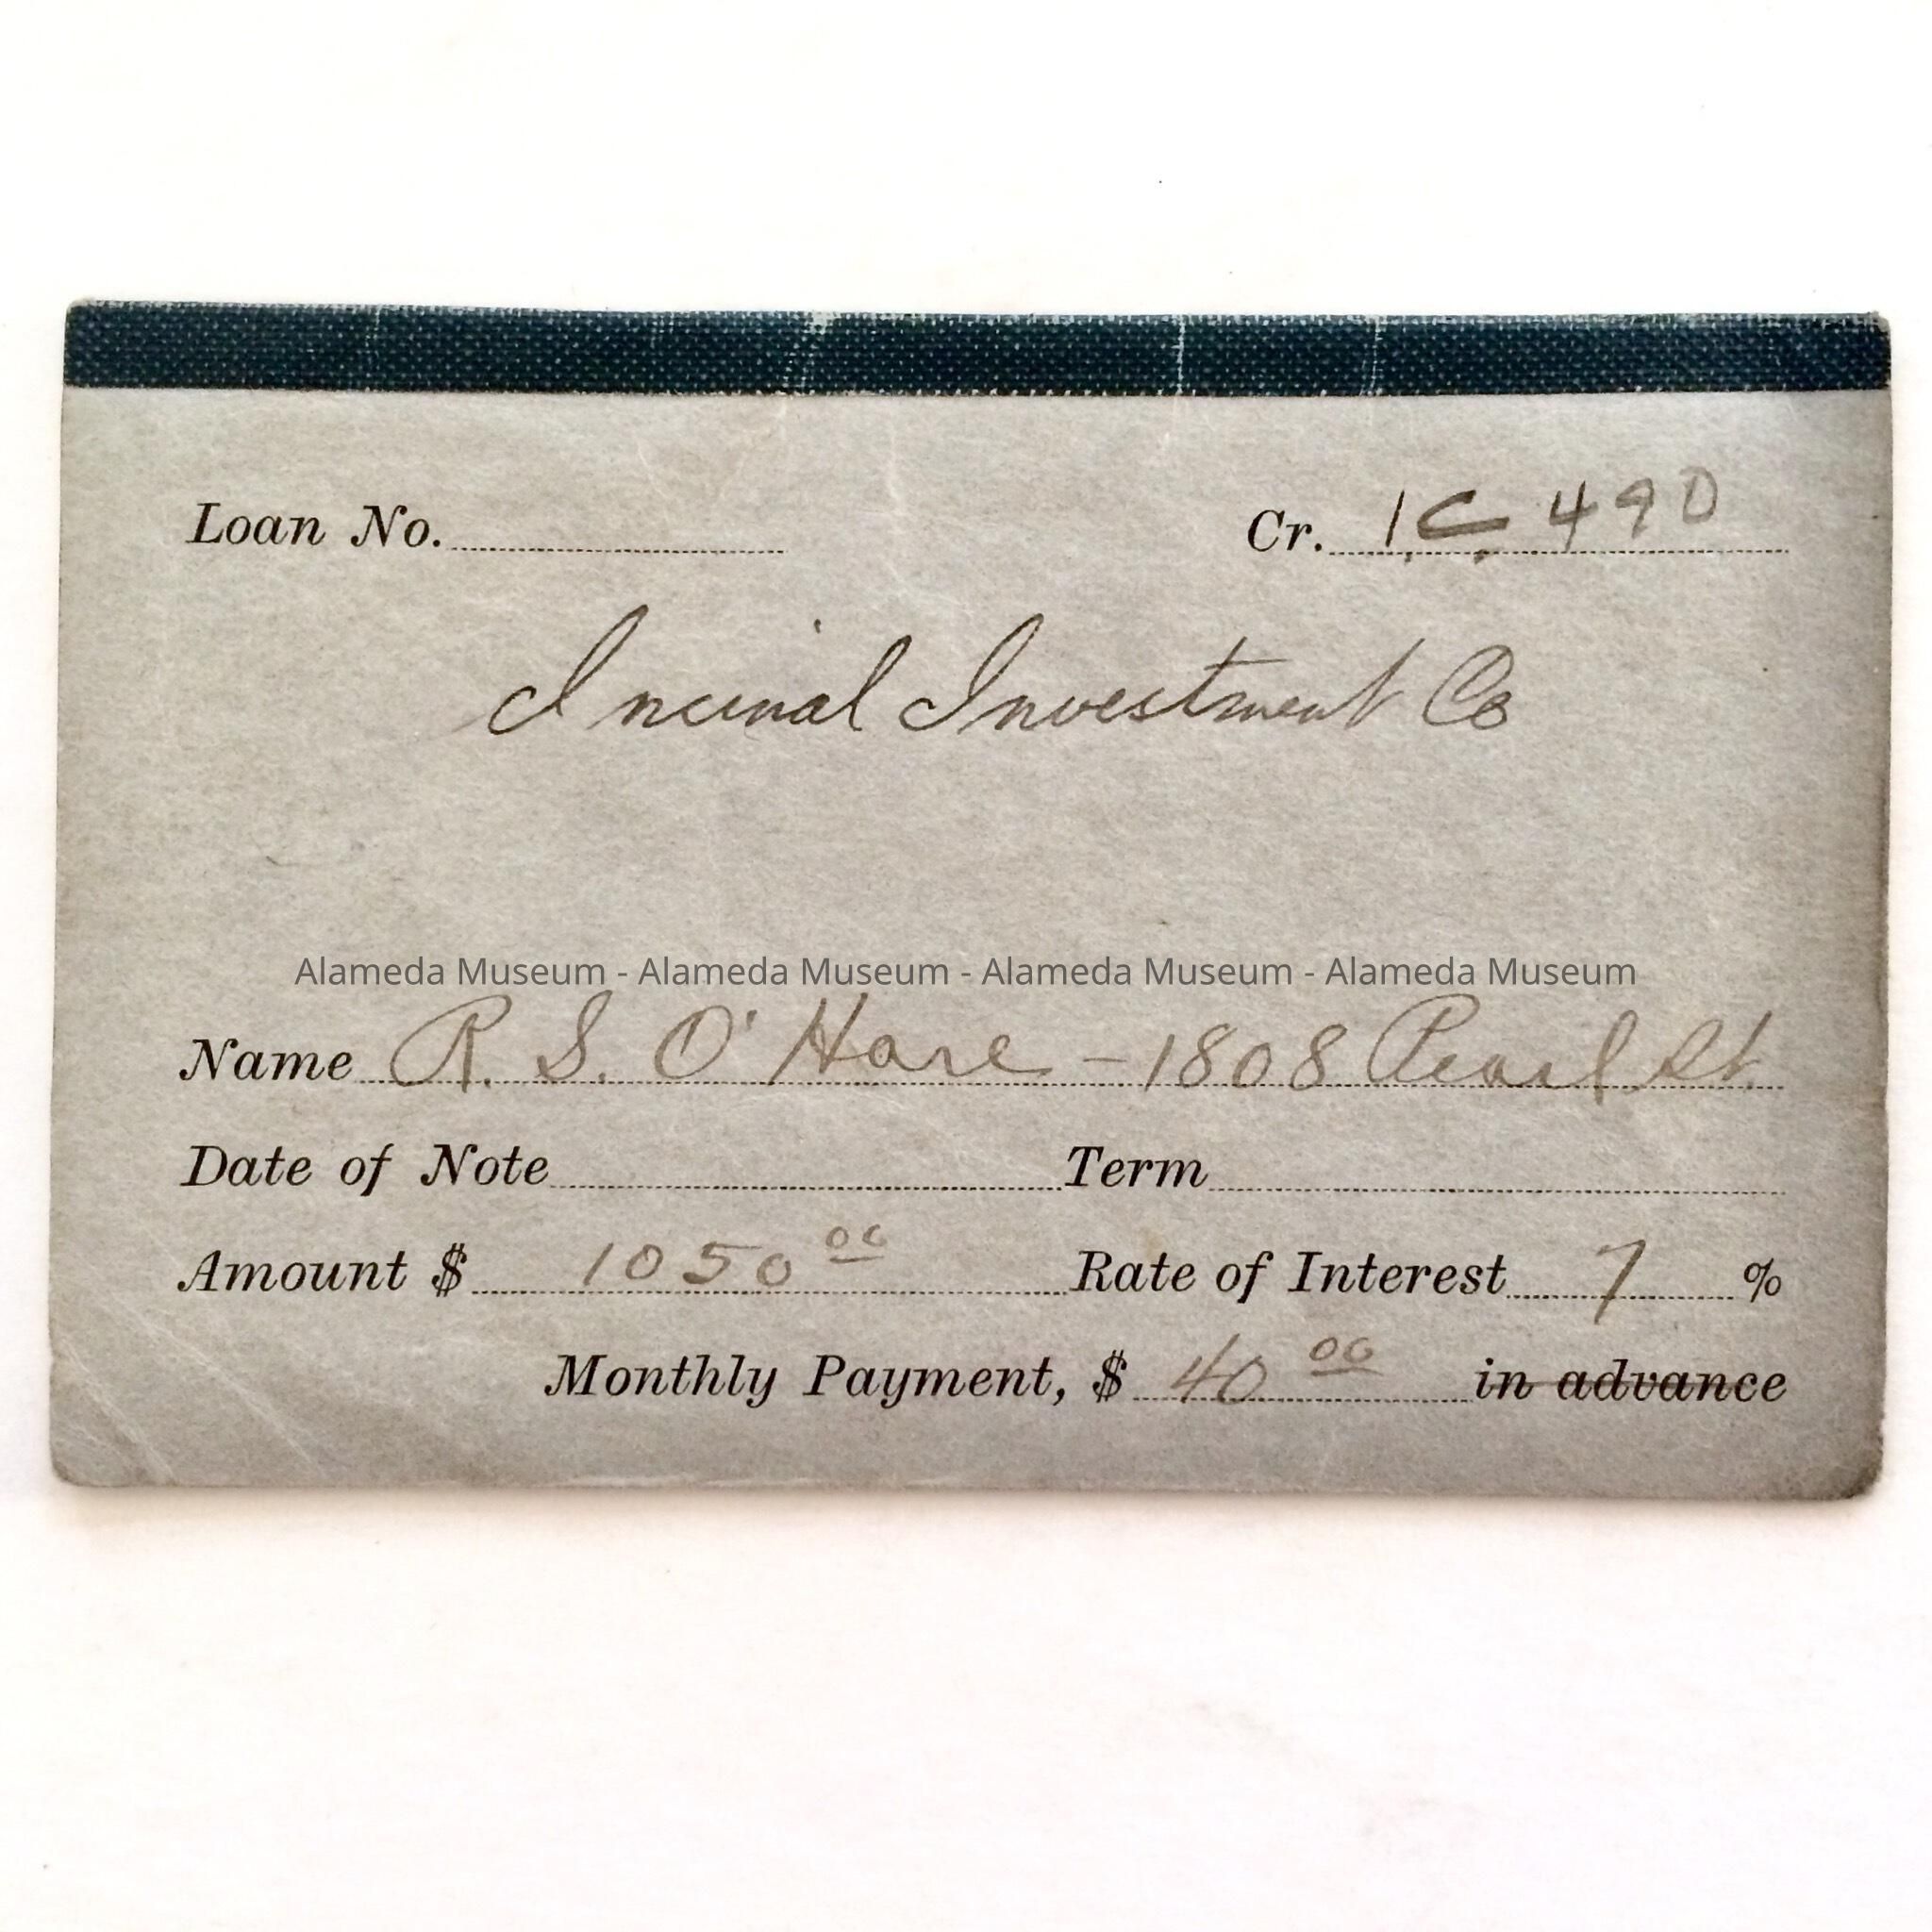 Loan No. Cr. I.C. 490
Incinal Investment Co
Alameda Museum - Alameda Museum - Alameda Museum - Alameda Museum
Name R. S. O'Hare - 1808 Pearl St.
Date of Note Term
Amount $ 1050 00 Rate of Interest 7 %
Monthly Payment, $ 40 00 in advance